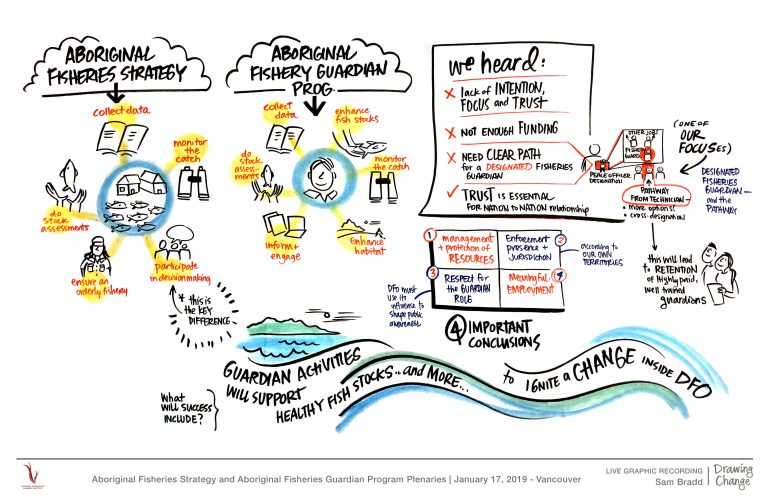 ABORIGINAL
FISHERIES STRATEGY
collect data
monitor
the
catch
do
stock
assessments
ensure an
orderly fishery
participate
in decision making
* this is
the KEY
DIFFERENCE
ABORIGINAL
FISHERY GUARDIAN
PROG
collect
data
enhance
fish stocks
do
stock
assess-
ments
monitor
the catch
inform +
engage
enhance
habitat
we heard:
x lack of INTENTION,
FOCUS and TRUST
x NOT ENOUGH FUNDING
x NEED CLEAR PATH
for a DESIGNATED FISHERIES
GUARDIAN
✓ TRUST is ESSENTIAL
FOR NATION to NATION relationship
PEACE OFFICER
DESIGNATION
OTHER JOBS
FISHERY
GUARD
(ONE OF
OUR
FOCUSES)
PATHWAY
FROM TECHNICIAN
• more options!
• cross-designation
DESIGNATED
FISHERIES
GUARDIAN -
and the
PATHWAY
this will lead
to RETENTION
of Highly paid,
well trained
guardians
1 management
+ protection of
RESOURCES
Enforcement
presence +
JURISDICTION 2
according to
OUR OWN
TERRITORIES
3 RESPECT for
the GUARDIAN
ROLE
Meaningful 4
EMPLOYMENT
DFO must
use its
influence to
shape public
awareness
4 IMPORTANT
CONCLUSIONS
GUARDIAN ACTIVITIES
WILL SUPPORT
HEALTHY FISH STOCKS.. and MORE...
to IGNITE a CHANGE INSIDE DFO
What
WILL SUCCESS
INCLUDE?
Aboriginal Fisheries Strategy and Aboriginal Fisheries Guardian Program Plenaries | January 17, 2019 - Vancouver
LIVE GRAPHIC RECORDING
Sam Bradd
Drawing
Change